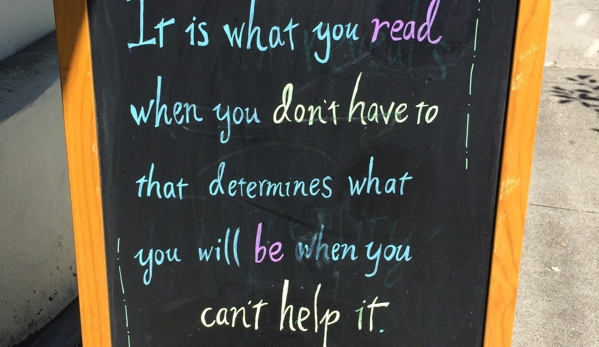 It is what you read
when you don't have to
that determines what
you will be when you
can't help it.